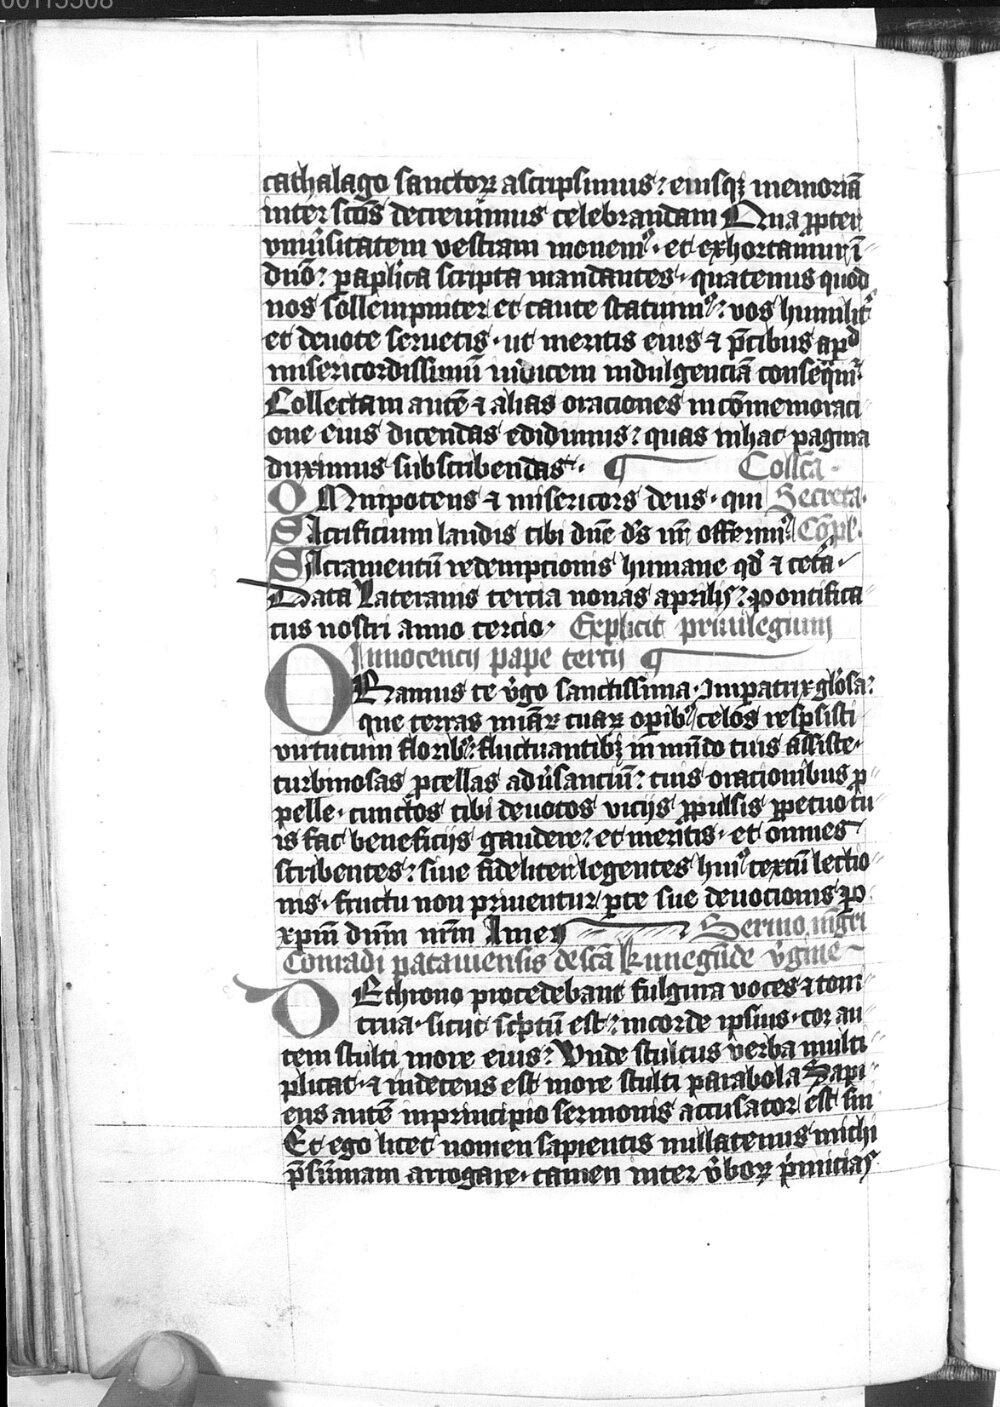 00115508
cathalago sanctoꝝ ascripsimus: eiusqꝫ memoriā
inter sc̄os decreuimus celebrandam Qua ꝓpter
vniūsitatem vestram monemꝰ · et exhortamur ī
dn̄o: ꝑ apl̓ica scripta mandantes · quatenus quod
nos sollempniter et caute statuimꝰ: vos humilit̓
et deuote seruetis · ut meritis eius ⁊ p̄cibus apd̓
misericordissimū iudicem indulgenciā conseq̄mr̓
Collectam autē ⁊ alias oraciones in cōmemoraci
one eius dicendas edidimus: quas in hac pagina
duximus subscribendas · Coll̄ca ·
OMnipotens ⁊ misericors deus · qui Secreta ·
SAcrificium laudis tibi dn̄e d̓s nr̄i offerimꝰ Cōpl̓ ·
SAcramentū redempcionis humane qd̓ ⁊ cet̓a ·
Data Lateranis tercia nonas aprilis: pontifica
tus nostri anno tercio · Explicit priuilegium
Innocencii pape tercii
ORamus te v̓go sanctissima · Imꝑatrix gl̓osa:
que terras mīaꝝ tuaꝝ oꝑibꝰ celos resꝑsisti
virtutum floribꝰ: fluctuantibꝫ in mūdo tuis assiste ·
turbinosas ꝓcellas adūsanciū: tuis oracionibus ꝓ
pelle · cunctos tibi deuotos viciis ꝓpulsis ꝑpetuo tu
is fac beneficiis gaudere: et meritis · et omnes
scribentes: siue fideliter legentes huiꝰ textū lectio
nis · fructu non priuentur ꝑte sue deuocionis · ꝑ
xp̄m dn̄m nr̄m Amen Sermo mgr̄i
Conradi patauiensis de sc̄a Kunegūde v̓gine
DE throno procedebant fulgura voces ⁊ toni
trua · sicut sc̓ptū est: in corde ipsius · cor au
tem stulti in ore eius: Vnde stultus verba multi
plicat · ⁊ indecens est in ore stulti parabola Sapi
ens autē in principio sermonis accusator est sui
Et ego licet nomen sapientis nullatenus michi
p̄sūmam arrogare · tamen inter v̓boꝝ p̓micias